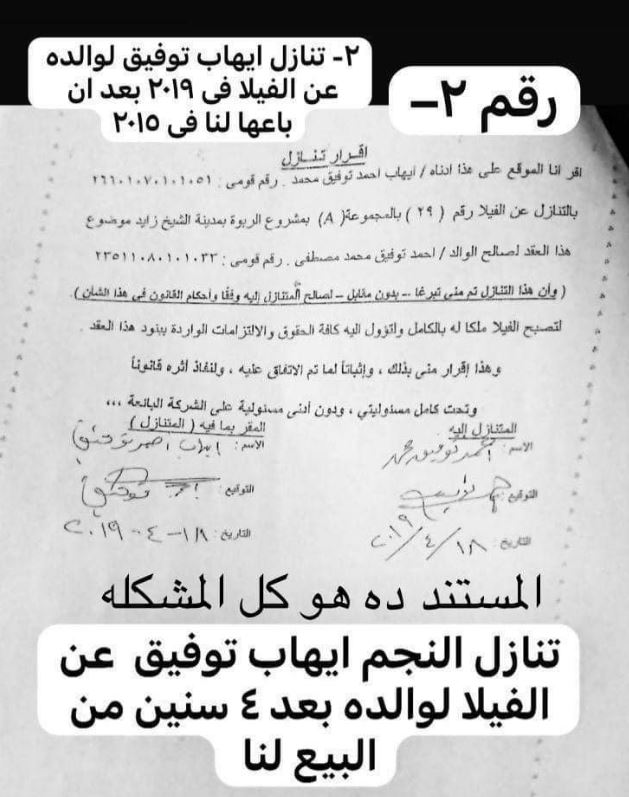 ٢- تنازل ايهاب توفيق لوالده
عن الفيلا فى ٢٠١٩ بعد ان
باعها لنا فى ٢٠١٥
رقم ٢-
اقرار تنازل
اقر انا الموقع على هذا ادناه / ايهاب احمد توفيق محمد . رقم قومى : ٢٦٦٠١٠٧٠١٠١٠٥١
بالتنازل عن الفيلا رقم ( ٢٩ ) بالمجموعة ( A ) بمشروع الربوة بمدينة الشيخ زايد موضوع
هذا العقد لصالح الوالد / احمد توفيق محمد مصطفى . رقم قومى : ٢٣٥١١٠٨٠١٠١٠٣٣
( وأن هذا التنازل تم منى تبرعا -- بدون مقابل – لصالح المتنازل إليه وفقا وأحكام القانون في هذا الشأن ).
لتصبح الفيلا ملكا له بالكامل ولتؤول اليه كافة الحقوق والالتزامات الواردة ببنود هذا العقد .
وهذا إقرار منى بذلك ، وإثباتاً لما تم الاتفاق عليه ، ولنفاذ أثره قانوناً
وتحت كامل مسئوليتي ، ودون أدنى مسئولية على الشركة البائعة ،،،
المتنازل إليه
الاسم : أحمد توفيق محمد
التوقيع :
التاريخ : ٢٠١٩/٤/١٨
المقر بما فيه ( المتنازل )
الاسم : ايهاب احمد توفيق
التوقيع :
التاريخ : ١٨-٤-٢٠١٩
المستند ده هو كل المشكله
تنازل النجم ايهاب توفيق عن
الفيلا لوالده بعد ٤ سنين من
البيع لنا